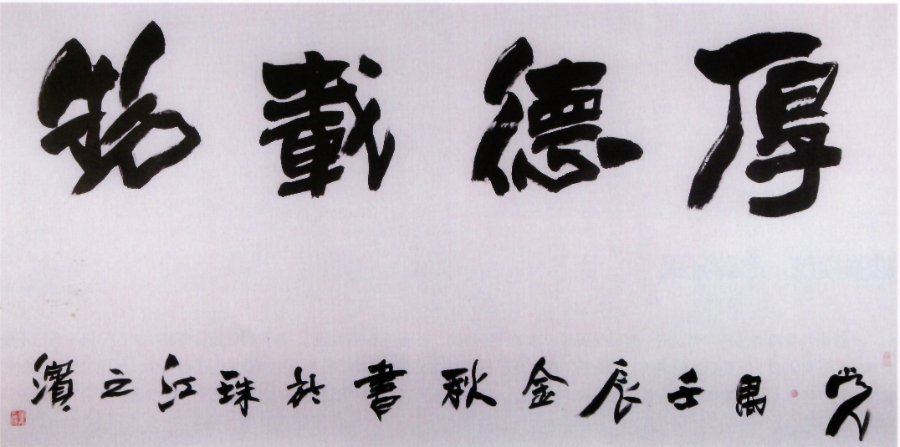 厚德載物
壬辰金秋書於珠江之濱